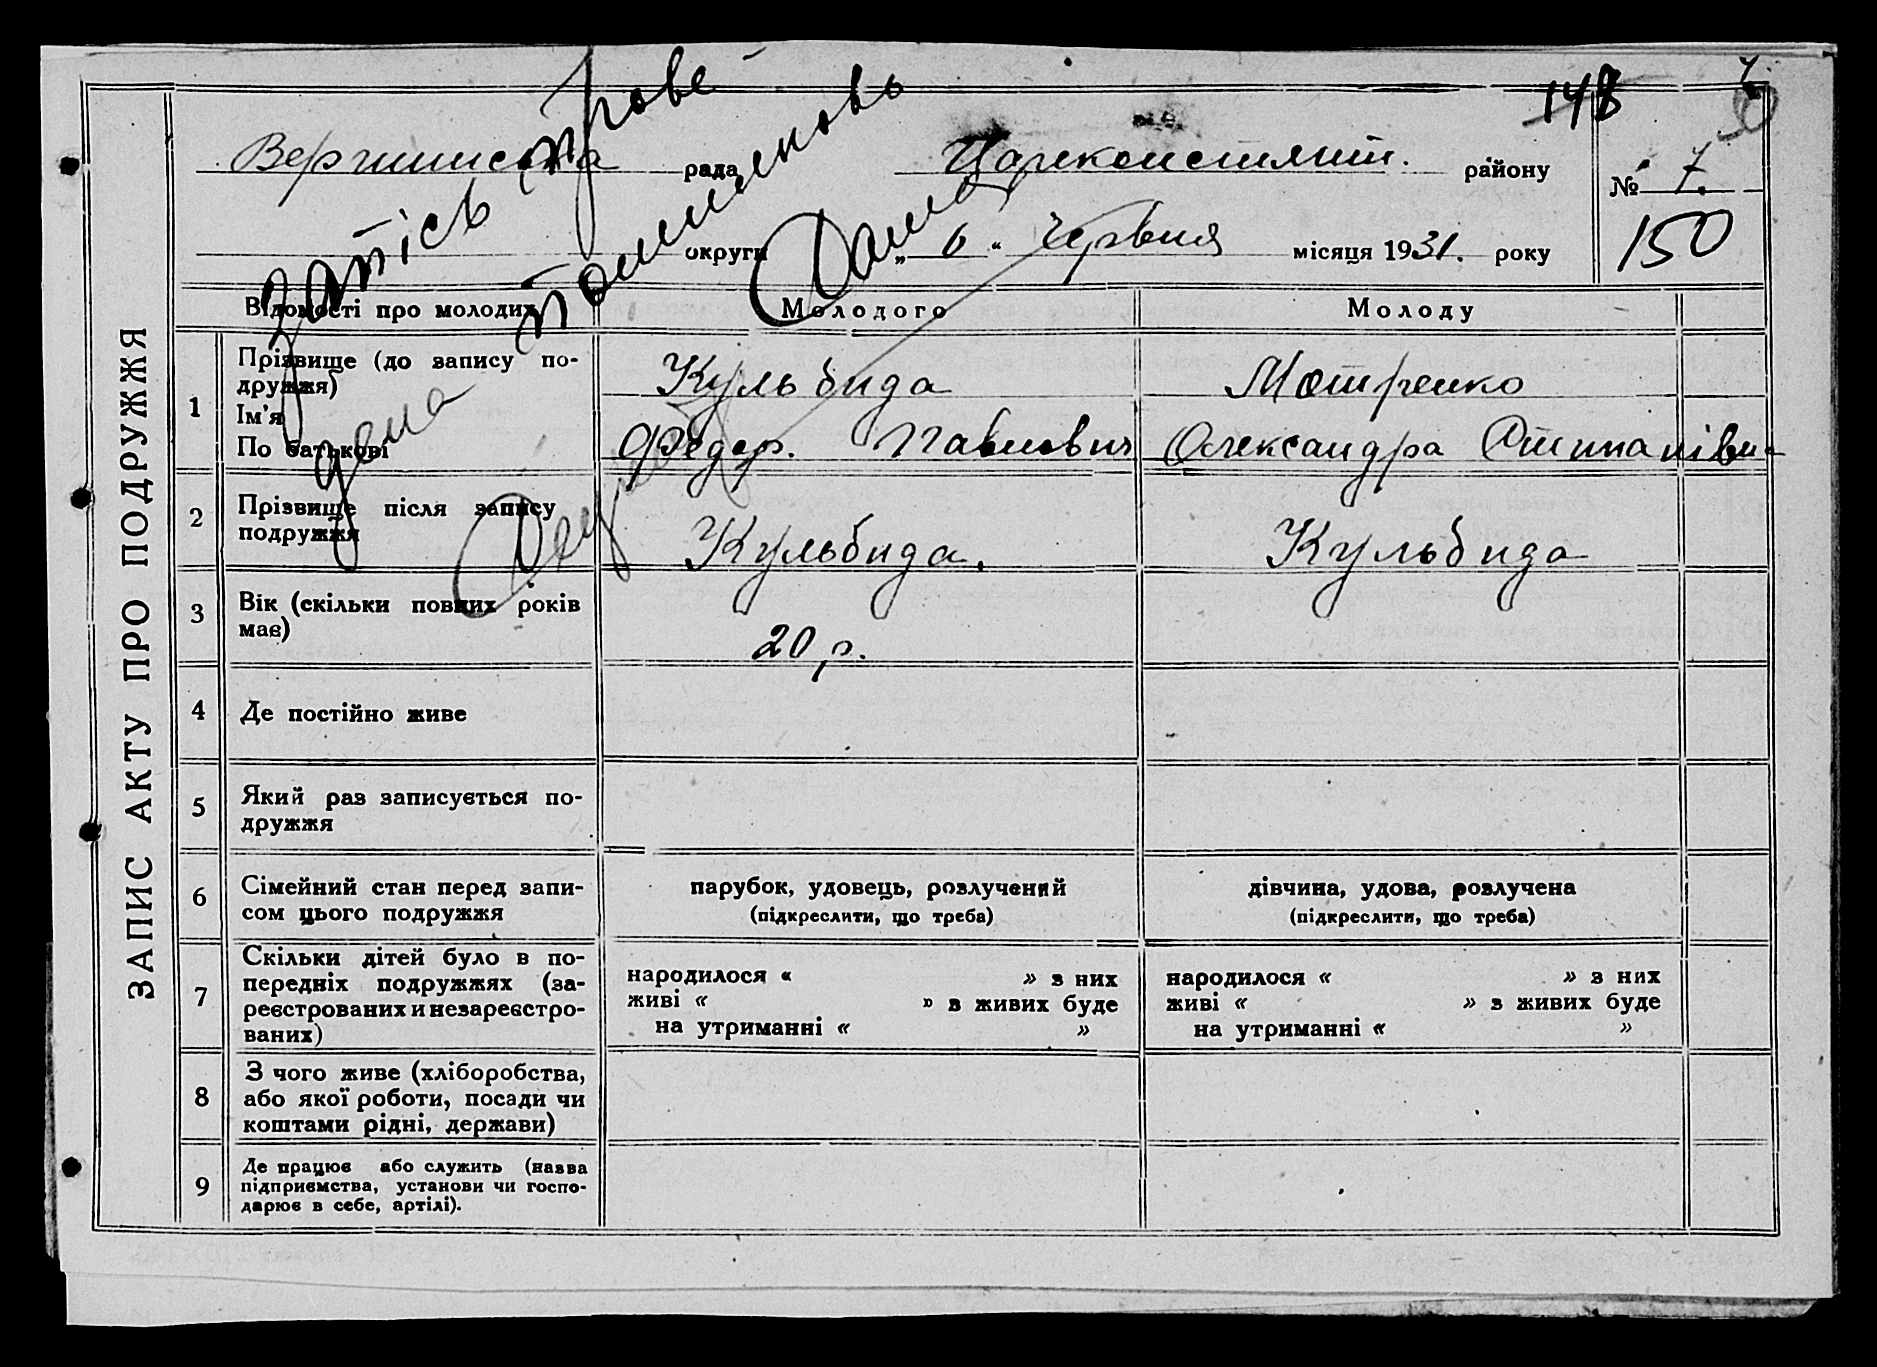 148
Вершинська рада Цареконстянт. району
№ 7.
округи „ 6 “ Червня місяця 1931. року
150
запісь прове
дена помилково
ЗАПИС АКТУ ПРО ПОДРУЖЖЯ
Відомості про молодих Молодого Молоду
1 Прізвище (до запису по-
дружжя) Кульбида Мотренко
Ім'я
По батькові Федор. Павлович Олександра Стипанівна
2 Прізвище після запису
подружжя Кульбида. Кульбида
3 Вік (скільки повних років
має) 20, р.
4 Де постійно живе
5 Який раз записується по-
дружжя
6 Сімейний стан перед запи- парубок, удовець, розлучений дівчина, удова, розлучена
сом цього подружжя (підкреслити, що треба) (підкреслити, що треба)
7 Скільки дітей було в по-
передніх подружжях (за-
реєстрованих и незареєстро-
ваних)
народилося « » з них народилося « » з них
живі « » з живих буде живі « » з живих буде
на утриманні « » на утриманні « »
8 З чого живе (хліборобства,
або якої роботи, посади чи
коштами рідні, держави)
9 Де працює або служить (назва
підприємства, установи чи госпо-
дарює в себе, артілі).